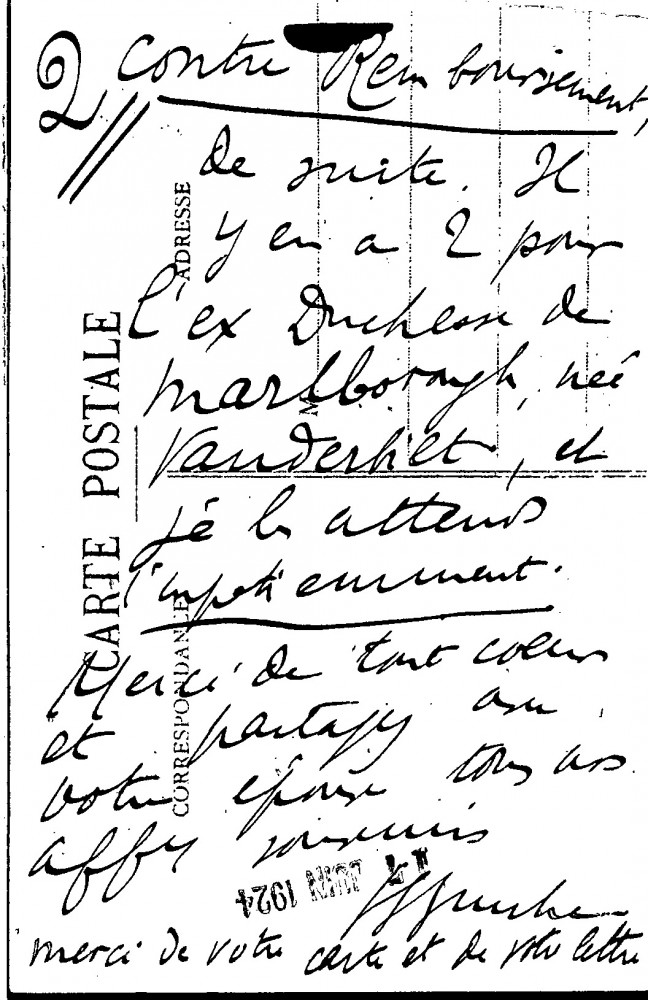 2 contre Remboursement,
de suite. Il
y en a 2 pour
l'ex Duchesse de
marlborough, neé
Vanderbilt, et
je les attends
impatiemment.
Merci de tout coeur
et partagez avec
votre épouse tous nos
affx souvenirs
merci de votre carte et de votre lettre
CARTE POSTALE
CORRESPONDANCE
ADRESSE
M
JUIN 1924